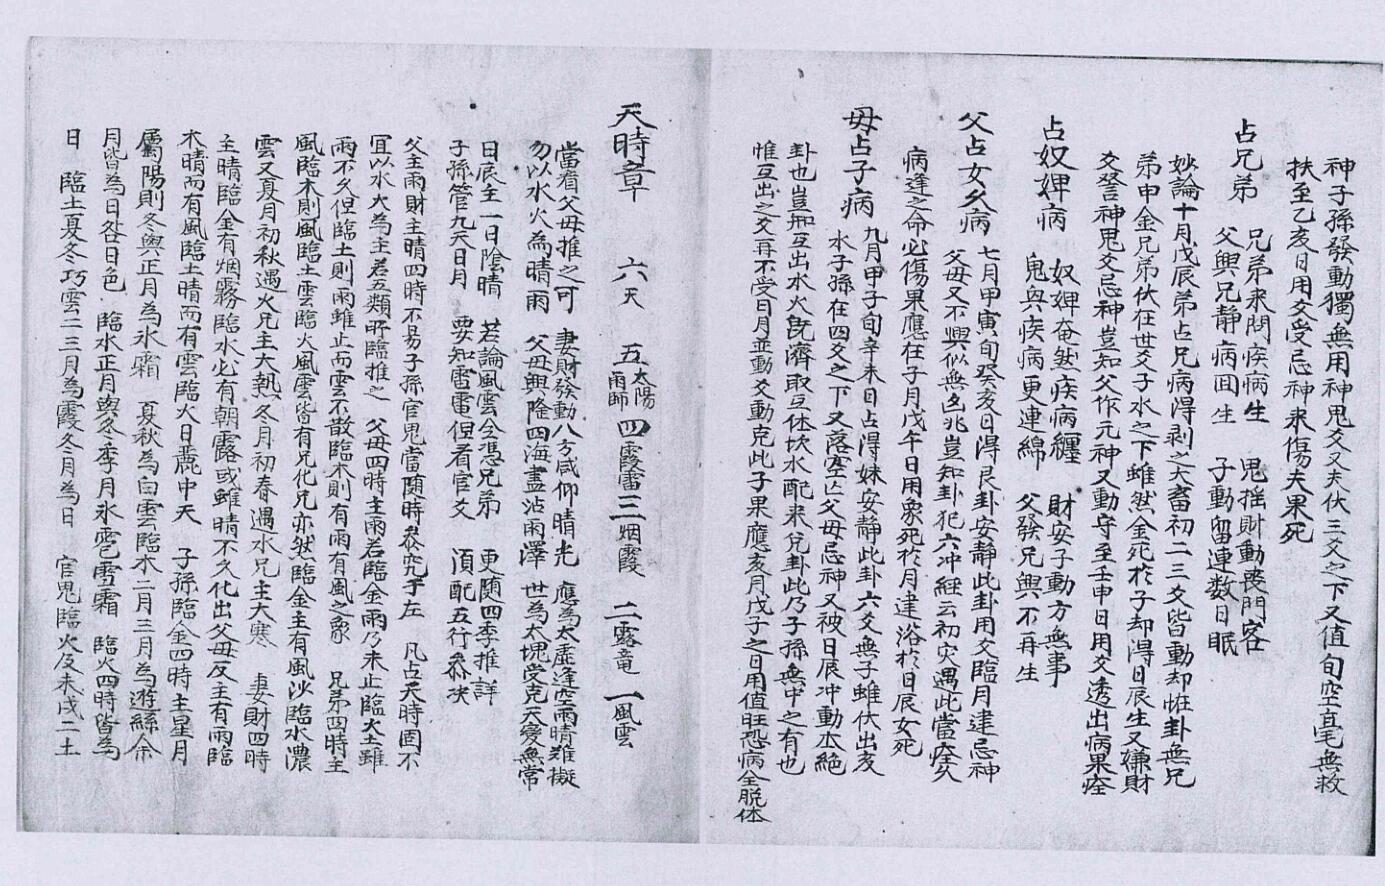 神子孫發動獨無用神鬼爻又夫伏三爻之下又值旬空毫無救
扶至乙亥日用爻受忌神來傷夫果死
占兄弟 兄弟來問疾病生 鬼搖財動喪門客
父興兄静病回生 子動留連数日眠
妙論十月戊辰弟占兄病得剥之大畜初二三爻皆動却恠卦無兄
弟申金兄弟伏在世爻子水之下雖然金死於子却得日辰生又嫌財
爻發神鬼爻忌神豈知父作元神又動守至壬申日用爻透出病果痊
占奴婢病 奴婢奄然疾病纏 財安子動方無事
鬼與疾病更連綿 父發兄興不再生
父占女久病 七月甲寅旬癸亥日得艮卦安静此卦用爻臨月建忌神
父母又不興似無凶兆豈知卦犯六冲經云初灾遇此當痊久
病逢之命必傷果應在子月戊午日用象死於月建浴於日辰女死
母占子病 九月甲子旬辛未日占得妹安静此卦六爻無子雖伏出亥
水子孫在四爻之下又落空亡父母忌神又被日辰冲動本絕
卦也豈知互出水火既濟取互体坎水配来兌卦此乃子孫無中之有也
惟互出之爻再不受日月並動爻動克此子果應亥月戊子之日用值旺恐病全脱体
天時章 六天 五太陽雨師 四霞雷 三烟霞 二露竜 一風雲
當看父母推之可 妻財發動八方咸仰晴光 應為太虛逢空雨晴難擬
勿以水火為晴雨 父母興隆四海盡沾雨澤 世為大塊受克天變無常
日辰主一日陰晴 若論風雲全憑兄弟 更随四季推詳
子孫管九天日月 要知雷電但看官爻 湏配五行叅决
父主雨財主晴四時不易子孫官鬼當随時叅究于左 凡占天時固不
宜以水火為主若五類所臨推之 父母四時主雨若臨金雨乃未止臨火土雖
雨不久但臨土則雨雖止而雲不散臨木則有雨有風之象 兄弟四時主
風臨木則風臨土雲臨火風雲皆有兄化兄亦然臨金主有風沙臨水濃
雲又夏月初秋遇火兄主大熱冬月初春遇水兄主大寒 妻財四時
主晴臨金有烟霧臨水必有朝露或雖晴不久化出父母反主有雨臨
木晴而有風臨土晴而有雲臨火日麗中天 子孫臨金四時主星月
屬陽則冬與正月為氷霜 夏秋為白雲臨木二月三月為遊絲余
月皆為日各日色 臨水正月與冬季月氷雹雪霜 臨火四時皆為
日 臨土夏冬巧雲二三月為霞冬月為日 官鬼臨火及未戌二土